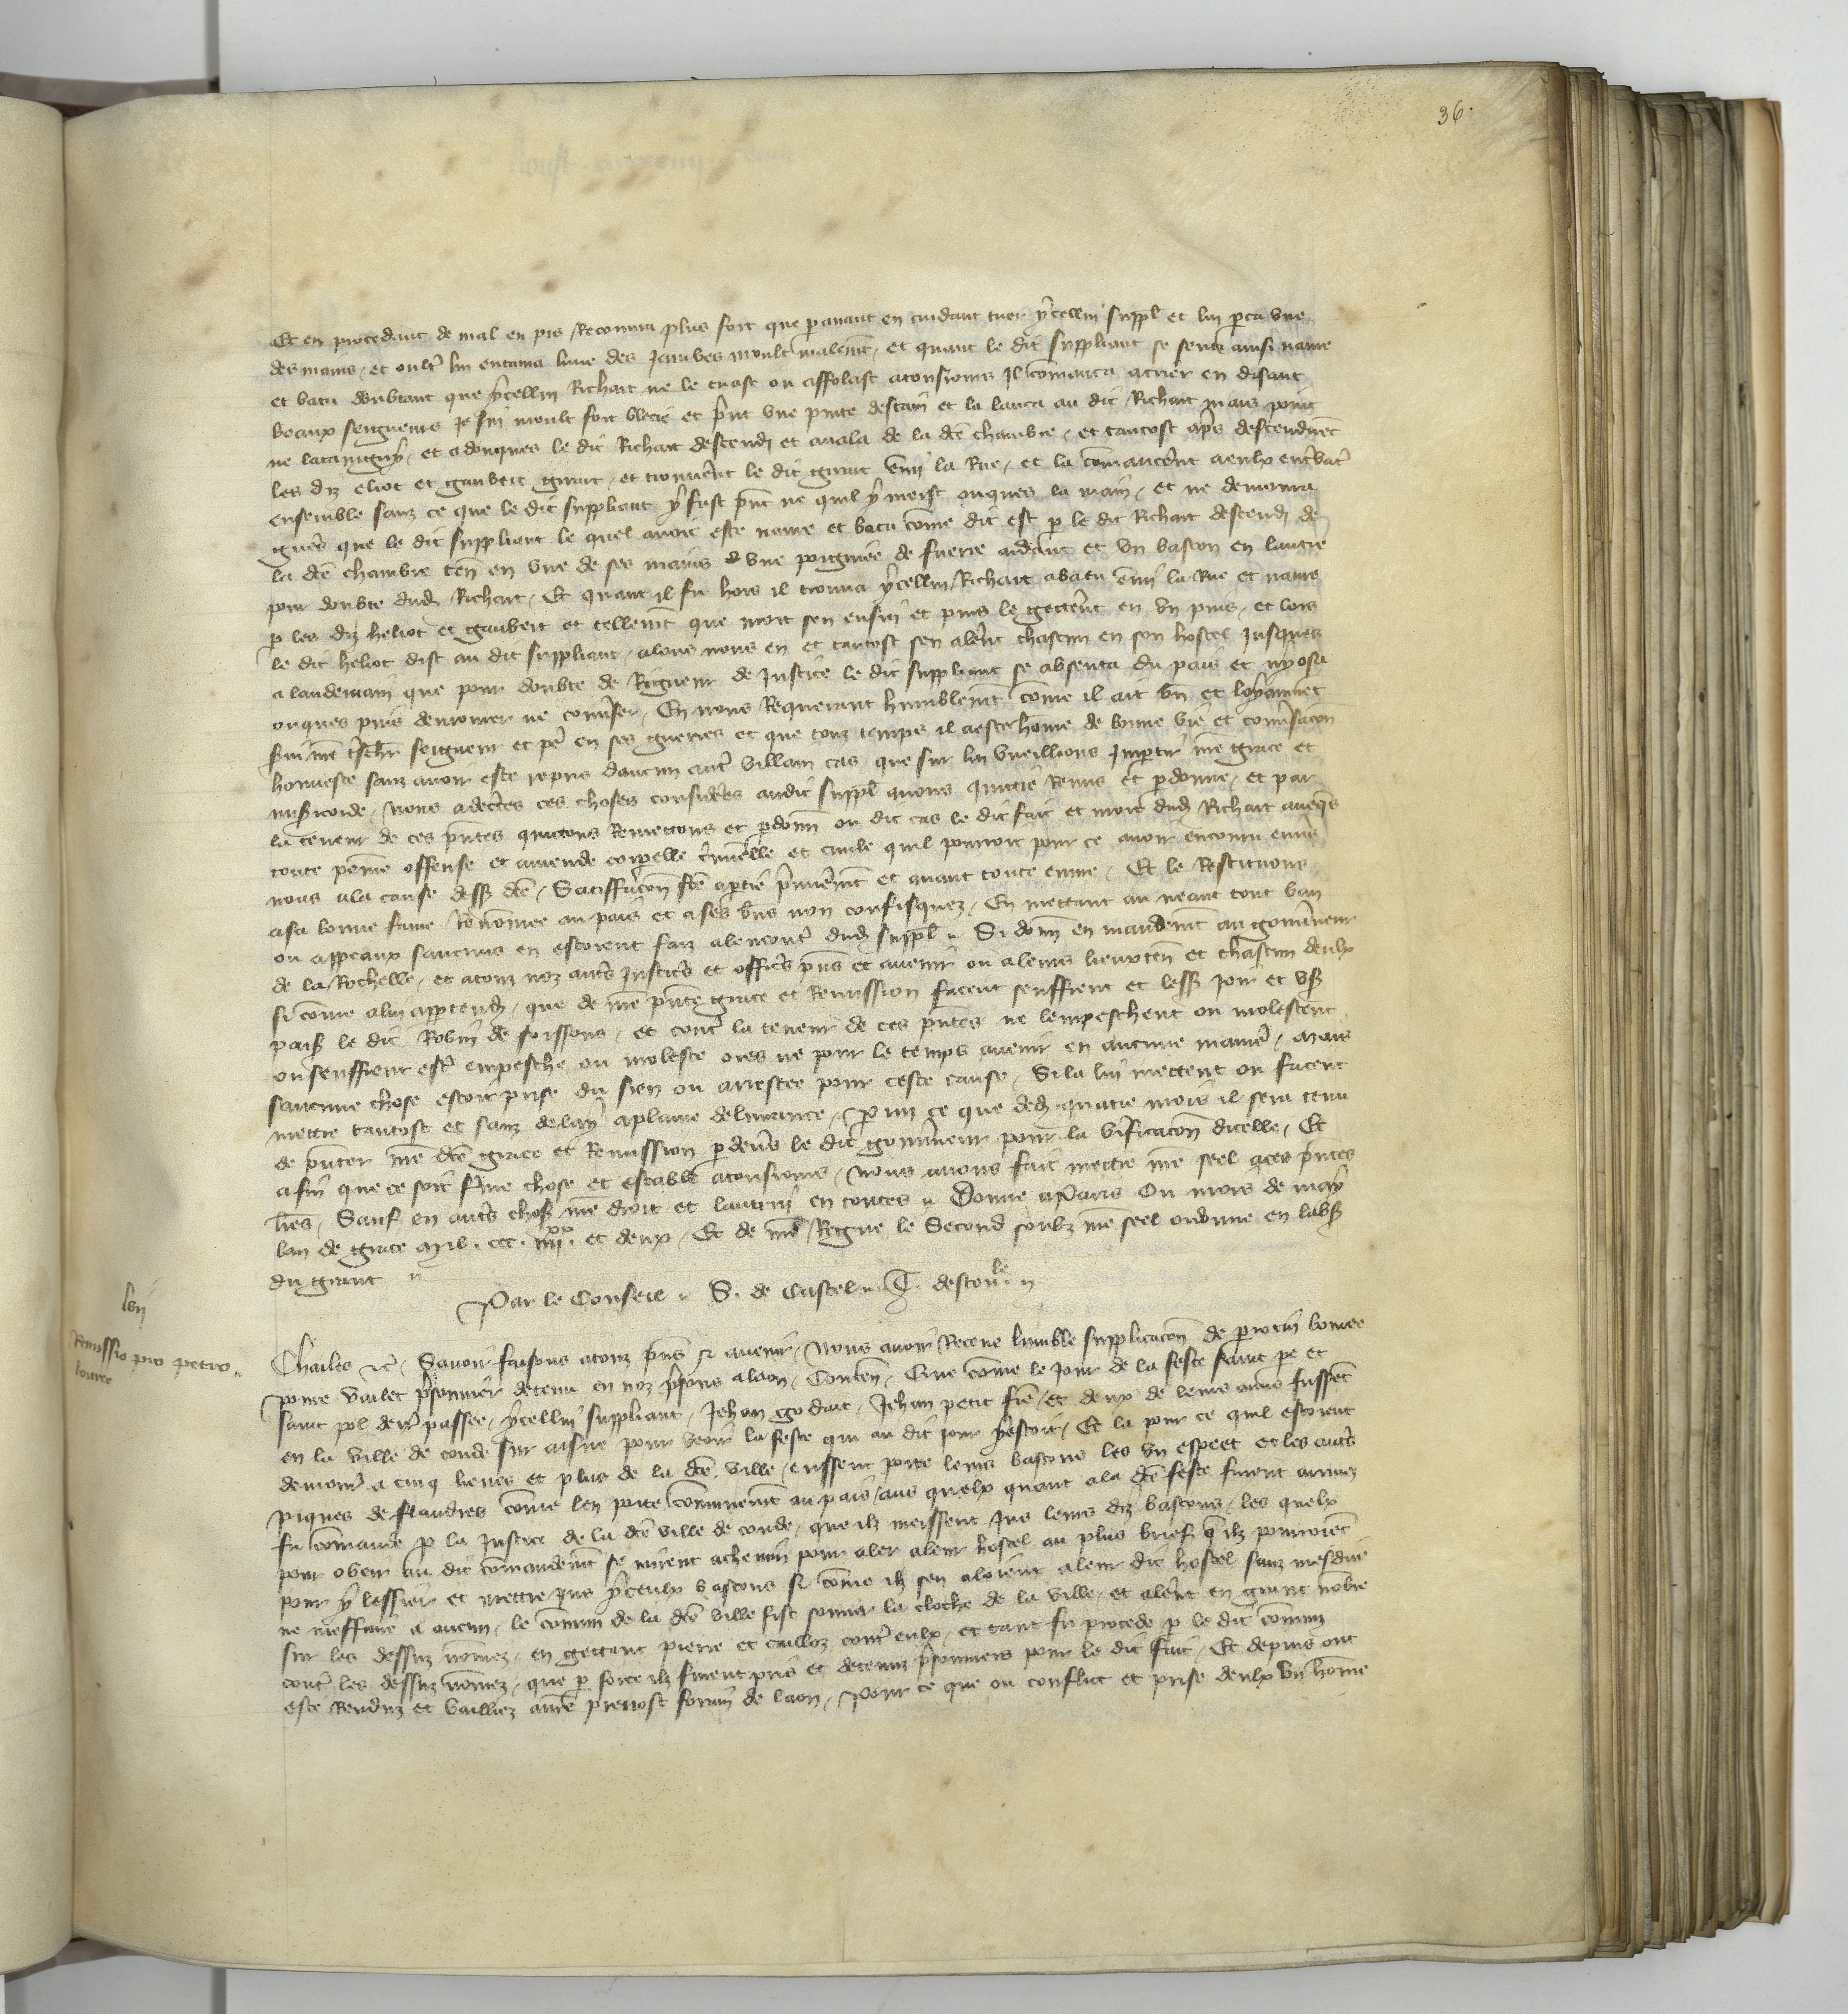 36.
Et en procedant de mal en pis Recouru plus fort que pavant en cuidant tuer ycellui suppl et lui pca une
des mains, et oultr lui entama lune des Jambes moult malemt, et quant le dit suppliant se senti ainsi navre
et batu doubtant que ycellui Richart ne le tuast ou affolast atousiours Il comanca acrier en disant
beaux seigneurs Je sui moult fort blecie et print une pinte destain et la lanca au dit Richart mais point
ne lataingny, et adonques le dit Richart descendi et avala de la dce chambre, et tantost apres descendirent
les diz eliot et gaubert girart, et trouverent le dit girart emi la Rue, et la comancerent a eulx entrbatr
ensemble sanz ce que le dit suppliant y fust prnt ne quil y meist onques la main, et ne demoura
gueres que le dit suppliant le quel avoit este navre et batu come dit est p le dit Richart descendi de
la dce chambre ten en une de ses mains une poignee de fuerre ardant et un baston en lautre
pour doubte dud Richart, Et quant il fu hors il trouva ycellui Richart abatu emi la Rue et navre
p les diz heliot et gaubert et tellemt que mort sen ensui et puis le getterent en un puis, et lors
le dit heliot dist au dit suppliant, alons nous en et tantost sen alerent chascun en son hostel Jusques
a landemain que pour doubte de Rigueur de Justice le dit suppliant se absenta du pais et ny osa
onques puis demourer ne converser, En nous Requerant humblemt come il ait bn et loyaument
servi nre treschr seigneur et pere en ses guerres et que touz temps il a este home de bonne vie et conversacon
honneste sanz avoir este repris daucun autr villain cas que sur lui vueillions Impartir nre grace et
misericorde, Nous adecertes ces choses considerees audit suppl avons quictie Remis et pdonne, et par
la teneur de ces prntes quittons Remettons et pdonn ou dit cas le dit fait et mort dud Richart aveques
toute peine offense et amende corporelle criminelle et civile quil pourroit pour ce avoir encouru envers
nous ala cause dess dce, Satiffacon fce a partie premieremt et avant toute euvre, Et le Restituons
asa bonne fame Renommee au pais et a ses bns non confisquez, En mettant au neant tout ban
ou appeaux saucuns en estoient faiz alencontr dud suppl, Si donn en mandemt au gouverneur
de la Rochelle, et atouz noz autrs Justicrs et officrs prns et avenir ou a leurs lieuxten et chascun deulx
si come alui appartendra, que de nre prnte grace et Remission facent seuffrent et less Joir et us
paisiblemt le dit Robin de soissons, et contr la teneur de ces prntes ne lempeschent ou molestent
ou seuffrent estr empesche ou moleste ores ne pour le temps avenir en aucune manier, Mais
saucune chose estoit prise du sien ou arrestee pour ceste cause, Si la lui mettent ou facent
mettre tantost et sanz delay a plaine delivrance, Parmi ce que dedens quatre mois il sera tenu
de prnter nre dce grace et Remission pdevers le dit gouverneur pour la verificacon dicelle, Et
afin que ce soit ferme chose et estable atousiours, Nous avons fait mettre nre seel aces prntes
lres, Sauf en autrs choses nre droit et lautrui en toutes, Donne a Paris Ou mois de May
lan de grace Mil. ccc. iiii xx. et deux, Et de nre Regne le Second soubz nre seel ordonne en labs
du grant
Par le Conseil S. de Castel T. destouvle
lvij
Remissio pro petro
bource
Charles etc, Savoir faisons atouz prns et avenir, Nous avoir Receue lumble supplicacon de perotin bource
pouvre varlet prisonnier detenu en noz prisons a laon, Conten, Que come le Jour de la feste saint pe et
saint pol derr passee, ycellui suppliant, Jehan godart, Jehan petit fre, et deux de leurs amis fussent
en la ville de conde sur aisne pour veoir la feste qui au dit jour y estoit, Et la pour ce quil estoient
demour a cinq lieues et plus de la dce ville, eussent porte leurs bastons les un espees et les autrs
piques de flandres come len porte comunemt au pais, aus quelx quant ala dce feste furent arrivez
fu comande p la Justice de la dce ville de conde, que ilz meissent Jus leurs diz bastons, les quelx
pour obeir au dit comandemt se mirent achemin pour aler aleur hostel au plus brief que ilz pourroient
pour y lessier et mettre jus yceulx bastons si come ilz sen aloient aleur dit hostel sanz mesdire
ne meffaire a aucun, le comun de la dce ville fist sonner la cloche de la ville, et alerent en grant nobre
sur les dessuz nomez, en gettant pierre et cailloz contr eulx, et tant fu procede p le dit comun
contr les dessuz nomez, que p force ilz furent pris et detenuz prisonniers pour le dit fait, Et depuis ont
este Renduz et bailliez a nre prevost forain de laon, Pour ce que ou conflict et prise deulx un home